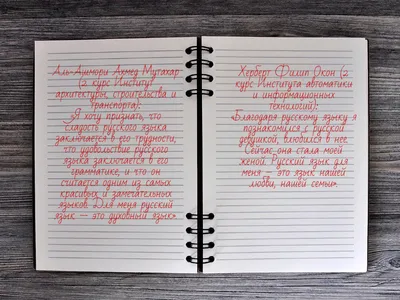 Аль-Ашмори Ахмед Мутахар
(2 курс Институт
архитектуры, строительства и
транспорта):
«Я хочу признать, что
сладость русского языка
заключается в его трудности,
что удовольствие русского
языка заключается в его
грамматике, и что он
считается одним из самых
красивых и замечательных
языков. Для меня русский
язык — это духовный язык».
Херберт Филип Окон (2
курс Института автоматики
и информационных
технологий):
«Благодаря русскому языку я
познакомился с русской
девушкой, влюбился в нее.
Сейчас она стала моей
женой. Русский язык для
меня — это язык нашей
любви, нашей семьи».